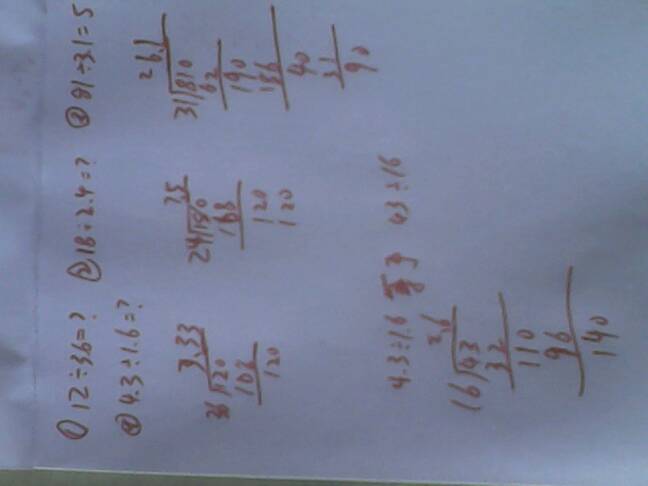 ① 12÷3.6=? ② 18÷2.4=? ③ 81÷3.1=5
④ 4.3÷1.6=?
3.33
36)120
108
120
7.5
24)180
168
120
120
26.1
31)810
62
190
186
40
31
90
4.3÷1.6 于 43÷16
2.6
16)43
32
110
96
140